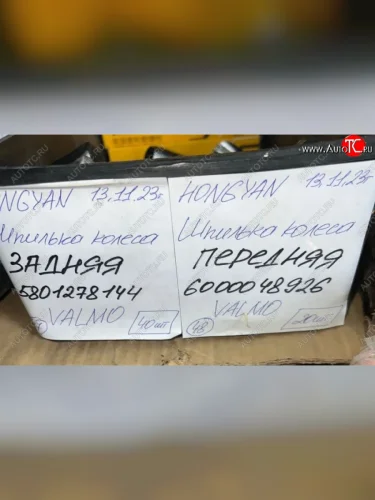 www.AutoTC.ru
NGYAN 13.11.23г
Шпилька колеса
ЗАДНЯЯ
5801278144
VALMO 40 шт
HONGYAN 13.11.23г
Шпилька колеса
ПЕРЕДНЯЯ
6000048926
VALMO
48